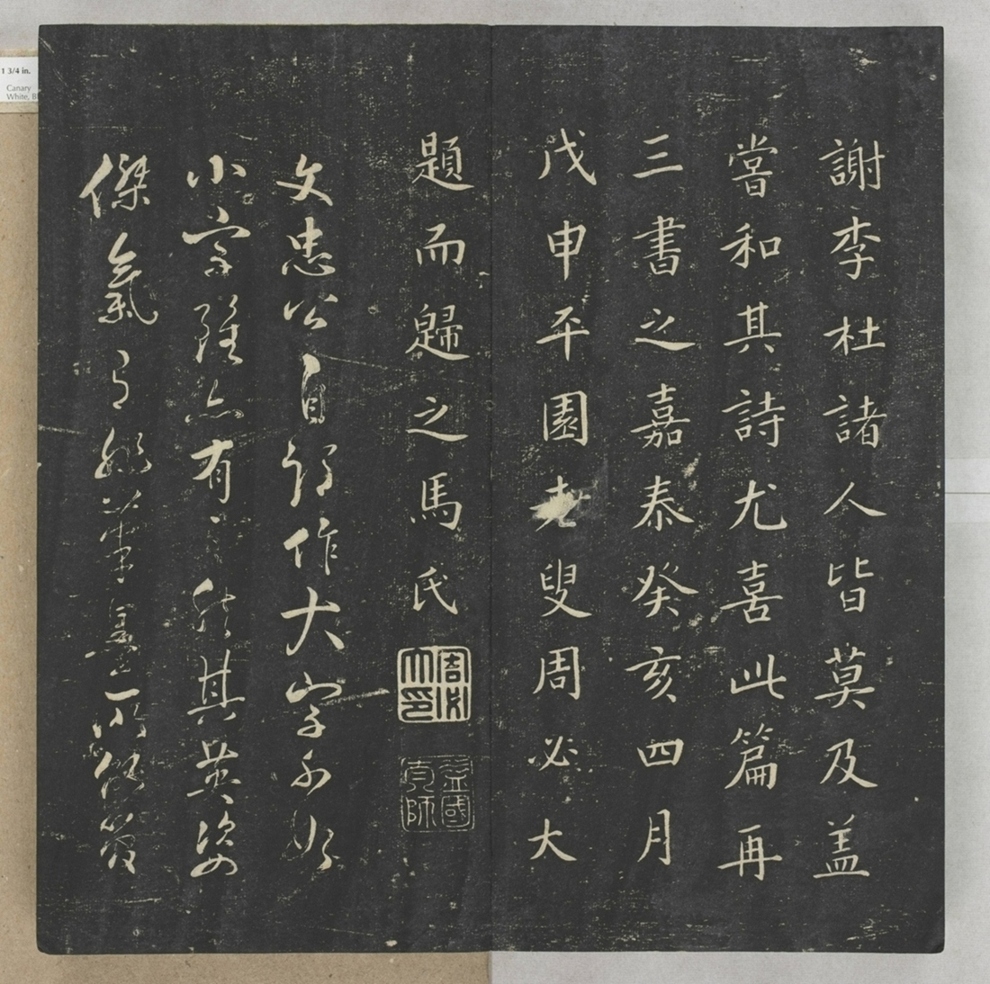 謝李杜諸人皆莫及盖
嘗和其詩尤喜此篇再
三書之嘉泰癸亥四月
戊申平園老叟周必大
題而歸之馬氏
周必大印
文忠公自謂作大字不如
小字雖亦有之然其英姿
傑氣有非筆墨所能
1 3/4 in.
Canary
White, Bl